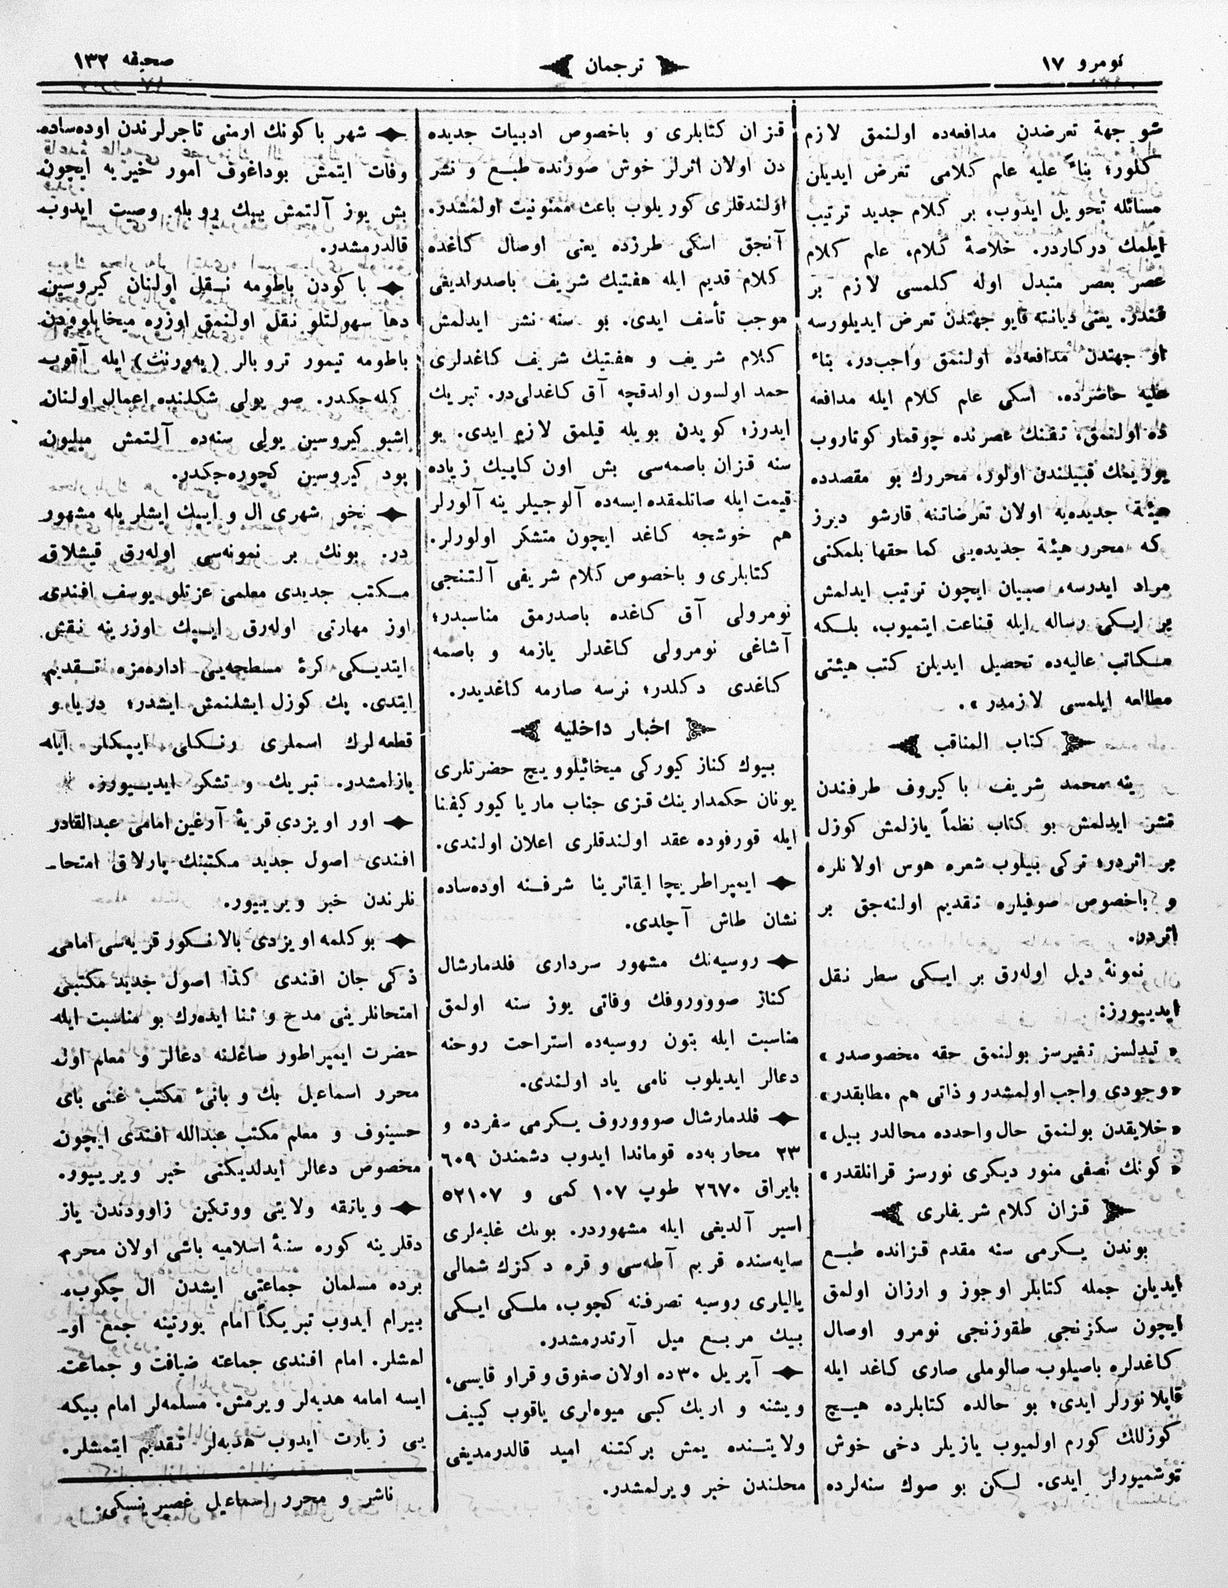 نومرو ١٧
ترجمان
صحیفه ١٣٢
شو جهة تعرضدن مدافعه‌ده اولنمق لازم
كلور؛ بناءً علیه علم كلامی تعرض ایدیلن
مسائله تحویل ایدوب، بر كلام جدید ترتیب
ایلمك دركاردر. خلاصهٔ كلام، علم كلام
عصر بعصر متبدل اوله كلمسی لازم بر
فندر. یعنی دیانته قایو جهتدن تعرض ایدیلورسه
او جهتدن مدافعه‌ده اولنمق واجب‌در، بناءً
علیه حاضرده، اسكی علم كلام ایله مدافعه
ده اولنمق، تفنك عصرنده چوقمار كوتاروب
یوریمك قبیلندن اولور، محررك بو مقصدده
هیئة جدیدیه اولان تعرضاتنه قارشو دیرز
كه محرر هیئة جدیده‌یی كما حقها بلمكنی
مراد ایدرسه، صبیان ایچون ترتیب ایدلمش
بر ایكی رساله ایله قناعت ایتمیوب، بلكه
مكاتب عالیه‌ده تحصیل ایدیلن كتب هیئتی
مطالعه ایلمسی لازمدر».
كتاب المناقب
ینه محمد شریف باكیروف طرفندن
نشر ایدلمش بو كتاب نظماً یازلمش كوزل
بر اثردر؛ تركی بیلوب شعره هوس اولانلره
و باخصوص صوفیلره تقدیم اولنه‌جق بر
اثردر.
نمونهٔ دیل اوله‌رق بر ایكی سطر نقل
ایدییورز:
« تبدلسز تغیرسز بولنمق حقه مخصوصدر »
« وجودی واجب اولمشدر و ذاتی هم مطابقدر »
« خلایقدن بولنمق حال واحدده محالدر بیل »
« كونك نصفی منور دیكری نورسز قرانلقدر »
قزان كلام شریفلری
بوندن یكرمی سنه مقدم قزانده طبع
ایدیلن جمله كتابلر اوجوز و ارزان اولمق
ایچون سكزنجی طقوزنجی نومرو اوصال
كاغدلره باصیلوب صالوملی صاری كاغد ایله
قاپلانورلر ایدی؛ بو حالده كتابلرده هیچ
كوزللك كورم اولمیوب یازیلر دخی خوش
توشمیورلر ایدی. لكن بو صوك سنه‌لرده
قزان كتابلری و باخصوص ادبیات جدیده
دن اولان اثرلر خوش صورنده طبع و نشر
اولندقلری كوریلوب باعث ممنونیت اولمشدر.
آنجق اسكی طرزده یعنی اوصال كاغده
كلام قدیم ایله هفتیك شریف باصدرلدیغی
موجب تأسف ایدی. بو سنه نشر ایدلمش
كلام شریف و هفتیك شریف كاغدلری
حمد اولسون اولدقچه آق كاغدلی‌در. تبریك
ایدرز؛ كویدن بویله قیلمق لازم ایدی. بو
سنه قزان باصمه‌سی بش اون كاپیك زیاده
قیمت ایله صاتلمقده ایسه‌ده آلوجیلر ینه آلورلر
هم خوشجه كاغد ایچون متشكر اولورلر.
كتابلری و باخصوص كلام شریفی آلتنجی
نومرولی آق كاغده باصدرمق مناسبدر؛
آشاغی نومرولی كاغدلر یازمه و باصمه
كاغدی دكلدر؛ نرسه صارمه كاغدیدر.
اخبار داخلیه
بیوك كناز كیوركی میخائیلوویچ حضرتلری
یونان حكمدارینك قزی جناب ماریا كیوركیفنا
ایله قورفوده عقد اولندقلری اعلان اولندی.
ایمپراطریچا ایقاترینا شرفنه اوده‌ساده
نشان طاش آچلدی.
روسیه‌نك مشهور سرداری فلدمارشال
كناز صووورو‌فك وفاتی یوز سنه اولمق
مناسبت ایله بتون روسیه‌ده استراحت روحنه
دعالر ایدیلوب نامی یاد اولندی.
فلدمارشال صوووروف یكرمی سفرده و
٢٣ محاربه‌ده قوماندا ایدوب دشمندن ٦٠٩
بایراق ٢٦٧٠ طوپ ١٠٧ كمی و ٥٢١٠٧
اسیر آلدیغی ایله مشهوردر. بونك غلبه‌لری
سایه‌سنده قریم آطه‌سی و قره دكزك شمالی
یالیلری روسیه تصرفنه كچوب، ملكی ایكی
بیك مربع میل آرتدرمشدر.
آپریل ٣٠ ده اولان صغوق و قراو قایسی،
ویشنه و اریك كبی میوه‌لری یاقوب كییف
ولایتنده یمش بركتنه امید قالدرمدیغی
محلندن خبر ویرلمشدر.
شهر باكونك ارمنی تاجرلرندن اوده‌ساده
وفات ایتمش بوداغوف امور خیریه ایچون
بش یوز آلتمش بیك روبله وصیت ایدوب
قالدرمشدر.
باكودن باطومه نقل اولنان كیروسین
دها سهولتلو نقل اولنمق اوزره میخایلوودن
باطومه تیمور تروبالر ایله آقوب
كله‌جكدر. صو یولی شكلنده اعمال اولنان
اشبو كیروسین یولی سنه‌ده آلتمش میلیون
پود كیروسین كچوره‌جكدر.
نخو شهری ال و ایپك ایشلریله مشهور
در. بونك بر نمونه‌سی اوله‌رق قیشلاق
مكتب جدیدی معلمی عزتلو یوسف افندی
اوز مهارتی اوله‌رق ایپك اوزرینه نقش
ایتدیكی كرهٔ مسطحه‌یی اداره‌مزه تقدیم
ایتدی. پك كوزل ایشلنمش ایشدر؛ دریا و
قطعه‌لرك اسملری رنكلی ایپكلر ایله
یازلمشدر. تبریك و تشكر ایدییورز.
اور اویزدی قریهٔ آرغین امامی عبدالقادر
افندی اصول جدید مكتبنك پارلاق امتحا-
نلرندن خبر ویرییور.
بوكلمه اویزدی بالا‌نكور قریه‌سی امامی
ذكی جان افندی كذا اصول جدید مكتبی
امتحانلرینی مدح و ثنا ایده‌رك بو مناسبت ایله
حضرت ایمپراطور صاغلغنه دعالر و معلم اول
محرر اسماعیل بك و بانیٔ مكتب غنی بای
حسینوف و معلم مكتب عبدالله افندی ایچون
مخصوص دعالر ایدلدیكنی خبر ویرییور.
ویاتقه ولایتی ووتكین زاوودندن یاز
دقلرینه كوره سنهٔ اسلامیه باشی اولان محرم
برده مسلمان جماعتی ایشدن ال چكوب،
بیرام ایدوب تبریكاً امام یورتینه جمع او-
لمشلر. امام افندی جماعته ضیافت و جماعت
ایسه امامه هدیه‌لر ویرمش. مسلمه‌لر امام بیكه
یی زیارت ایدوب هدیه‌لر تقدیم ایتمشلر.
ناشر و محرر اسماعیل غصپرینسكی.